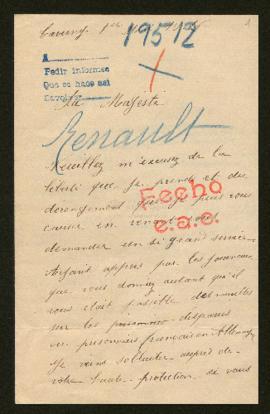 19512
A
Pedir informes
Que se hace así
Sa Majesté
Renault
Veuillez m'excuser de la
que je prends et du
dérangement que je peux vous
Fecho
causer en venant vous
e.a.c.
demander un si grand service
Ayant appris par les journaux
que vous donniez autant qu'il
vous était possible des nouvelles
sur les prisonniers disparus
ou prisonniers français en Allemagne
Je viens solliciter auprès de
votre haute protection si vous